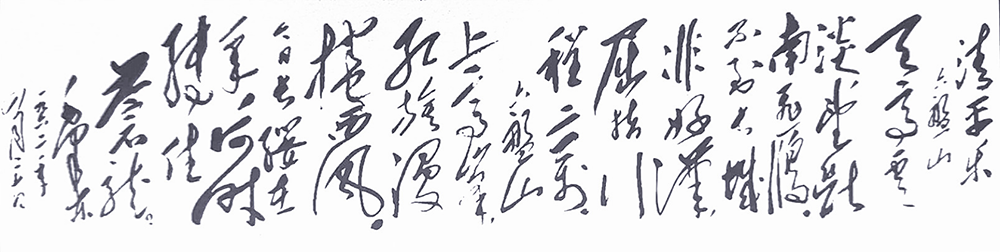 清平乐
六盘山
天高云
淡望断
南飞雁。
不到长城
非好汉,
屈指行
程二万。
六盘山
上高峰,
红旗漫
捲西风。
今日长缨在
手,何时
缚住
苍龙。
毛泽东
一九六一年
九月八日